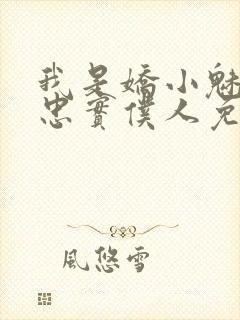 我是嬌小魅
忠實僕人免
風悠雪